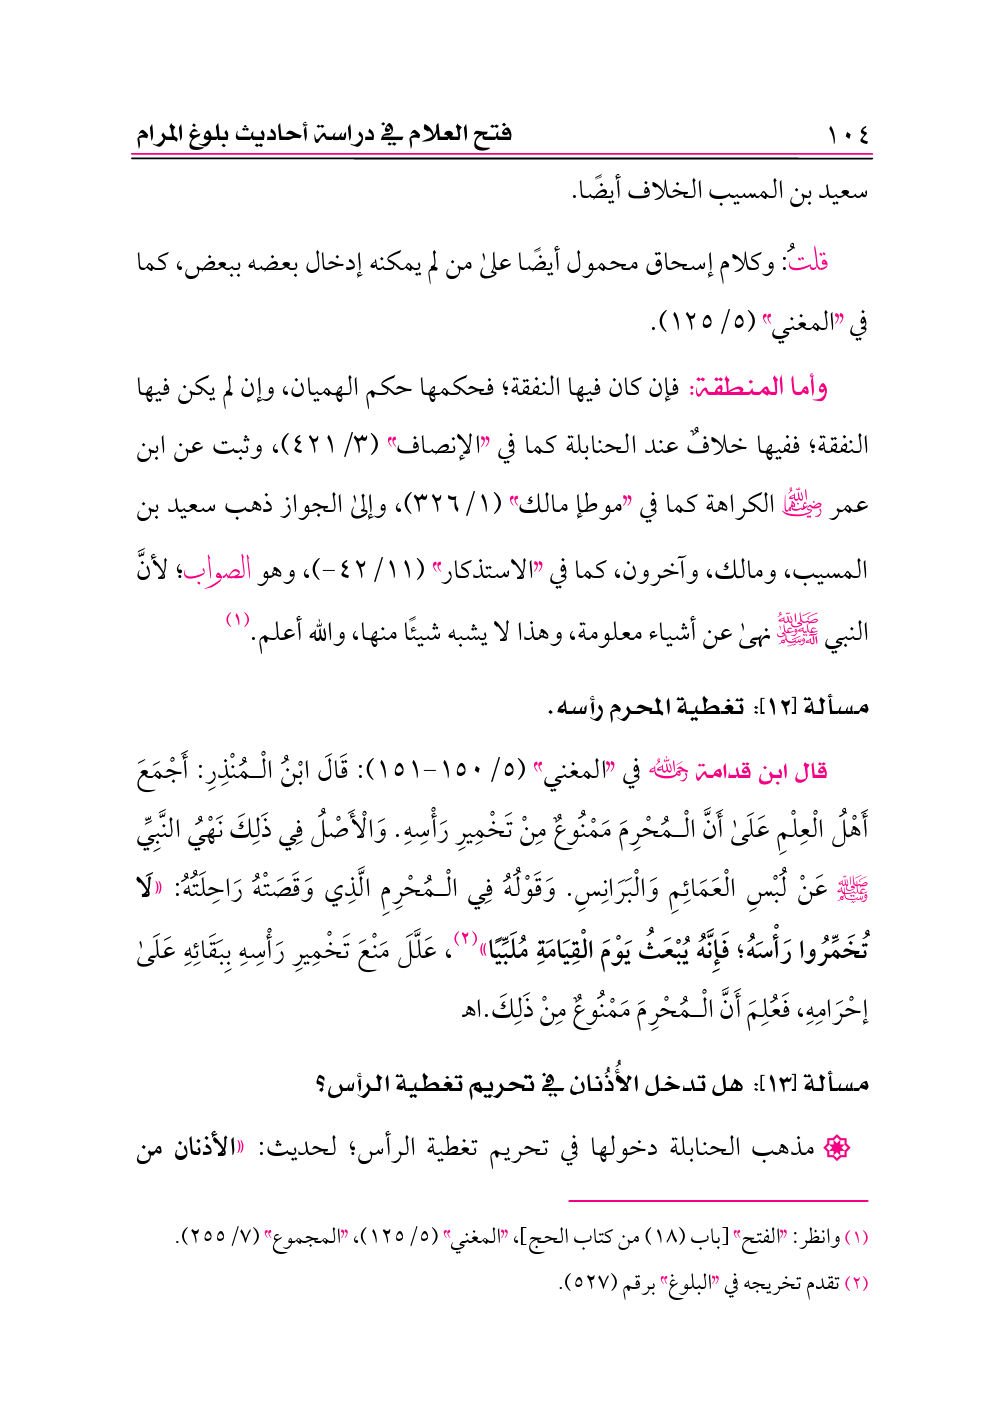 ١٠٤ فتح العلام في دراسة أحاديث بلوغ المرام
سعيد بن المسيب الخلاف أيضًا.
قلتُ: وكلام إسحاق محمول أيضًا علىٰ من لم يمكنه إدخال بعضه ببعض، كما
في "المغني" (٥/ ١٢٥).
وأما المنطقة: فإن كان فيها النفقة؛ فحكمها حكم الهميان، وإن لم يكن فيها
النفقة؛ ففيها خلافٌ عند الحنابلة كما في "الإنصاف" (٣/ ٤٢١)، وثبت عن ابن
عمر رضي الله عنهما الكراهة كما في "موطإ مالك" (١/ ٣٢٦)، وإلىٰ الجواز ذهب سعيد بن
المسيب، ومالك، وآخرون، كما في "الاستذكار" (١١/ ٤٢-)، وهو الصواب؛ لأنَّ
النبي صلى الله عليه وعلى آله وسلم نهىٰ عن أشياء معلومة، وهذا لا يشبه شيئًا منها، والله أعلم.(١)
مسألة [١٢]: تغطية المحرم رأسه.
قال ابن قدامة رحمه الله في "المغني" (٥/ ١٥٠-١٥١): قَالَ ابْنُ الْـمُنْذِرِ: أَجْمَعَ
أَهْلُ الْعِلْمِ عَلَىٰ أَنَّ الْـمُحْرِمَ مَمْنُوعٌ مِنْ تَخْمِيرِ رَأْسِهِ. وَالْأَصْلُ فِي ذَلِكَ نَهْيُ النَّبِيِّ
ﷺ عَنْ لُبْسِ الْعَمَائِمِ وَالْبَرَانِسِ. وَقَوْلُهُ فِي الْـمُحْرِمِ الَّذِي وَقَصَتْهُ رَاحِلَتُهُ: «لَا
تُخَمِّرُوا رَأْسَهُ؛ فَإِنَّهُ يُبْعَثُ يَوْمَ الْقِيَامَةِ مُلَبِّيًا»(٢)، عَلَّلَ مَنْعَ تَخْمِيرِ رَأْسِهِ بِبَقَائِهِ عَلَىٰ
إحْرَامِهِ، فَعُلِمَ أَنَّ الْـمُحْرِمَ مَمْنُوعٌ مِنْ ذَلِكَ.اهـ
مسألة [١٣]: هل تدخل الأُذُنان في تحريم تغطية الرأس؟
مذهب الحنابلة دخولها في تحريم تغطية الرأس؛ لحديث: «الأذنان من
(١) وانظر: "الفتح" [باب (١٨) من كتاب الحج]، "المغني" (٥/ ١٢٥)، "المجموع" (٧/ ٢٥٥).
(٢) تقدم تخريجه في "البلوغ" برقم (٥٢٧).